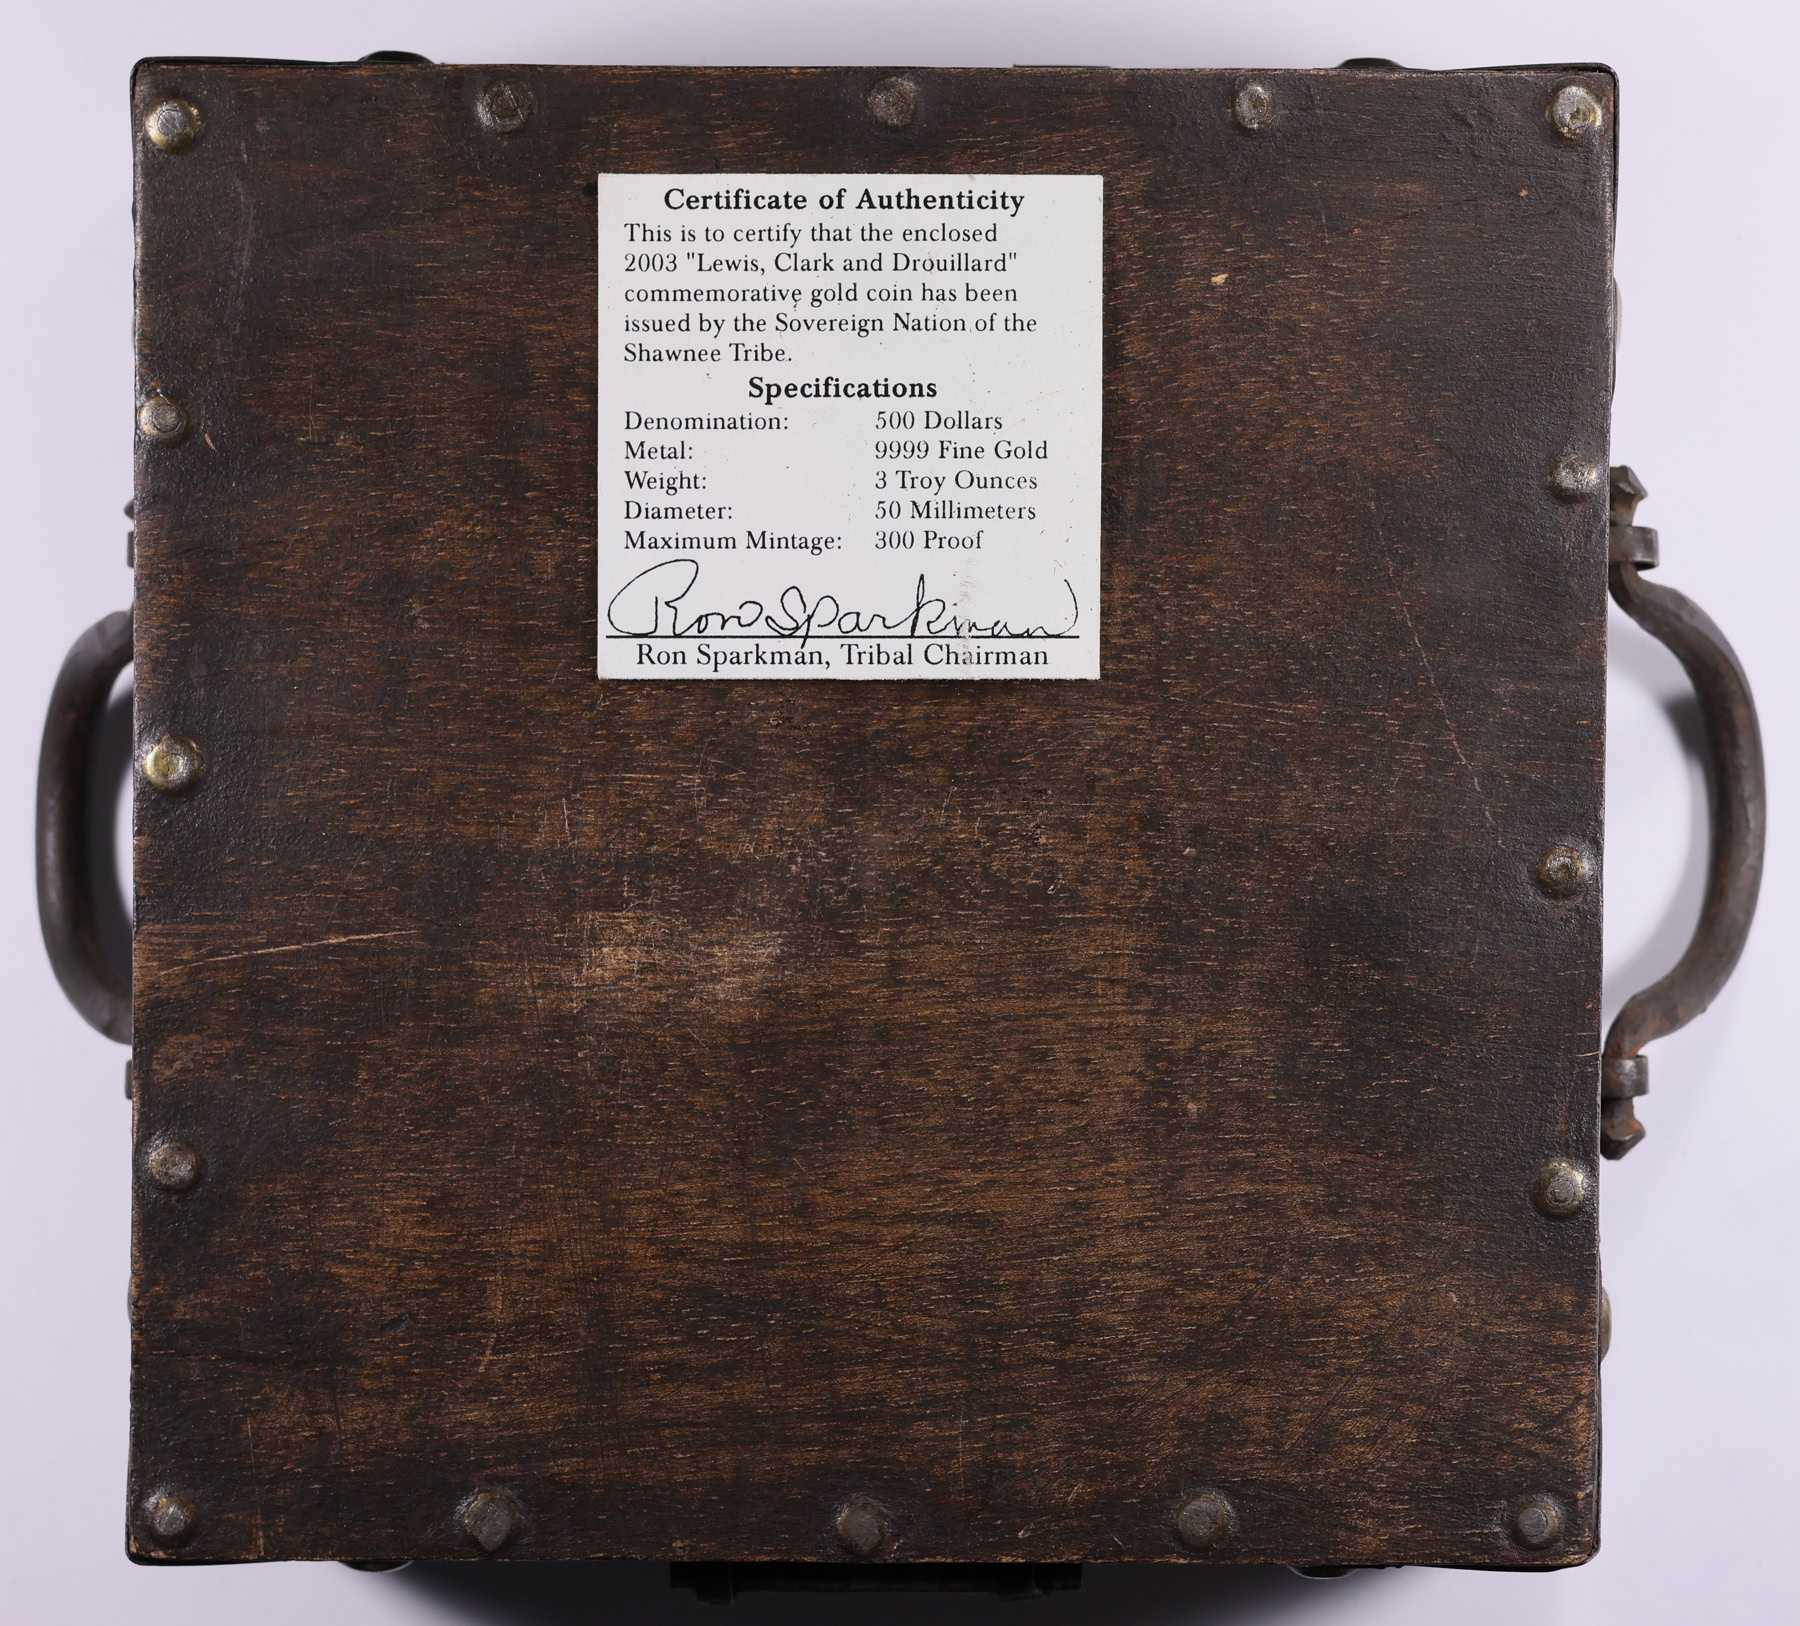 Certificate of Authenticity
This is to certify that the enclosed
2003 "Lewis, Clark and Drouillard"
commemorative gold coin has been
issued by the Sovereign Nation of the
Shawnee Tribe.
Specifications
Denomination: 500 Dollars
Metal: 9999 Fine Gold
Weight: 3 Troy Ounces
Diameter: 50 Millimeters
Maximum Mintage: 300 Proof
Ron Sparkman
Ron Sparkman, Tribal Chairman